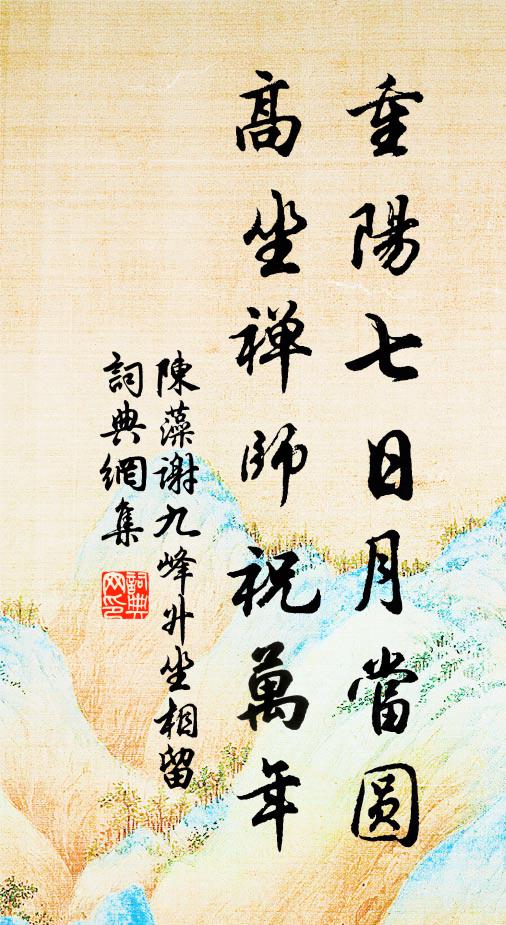 重陽七日月當圆
高坐禅師祝萬年
陳藻谢九峰升坐相留
詞典網集
詞典网印